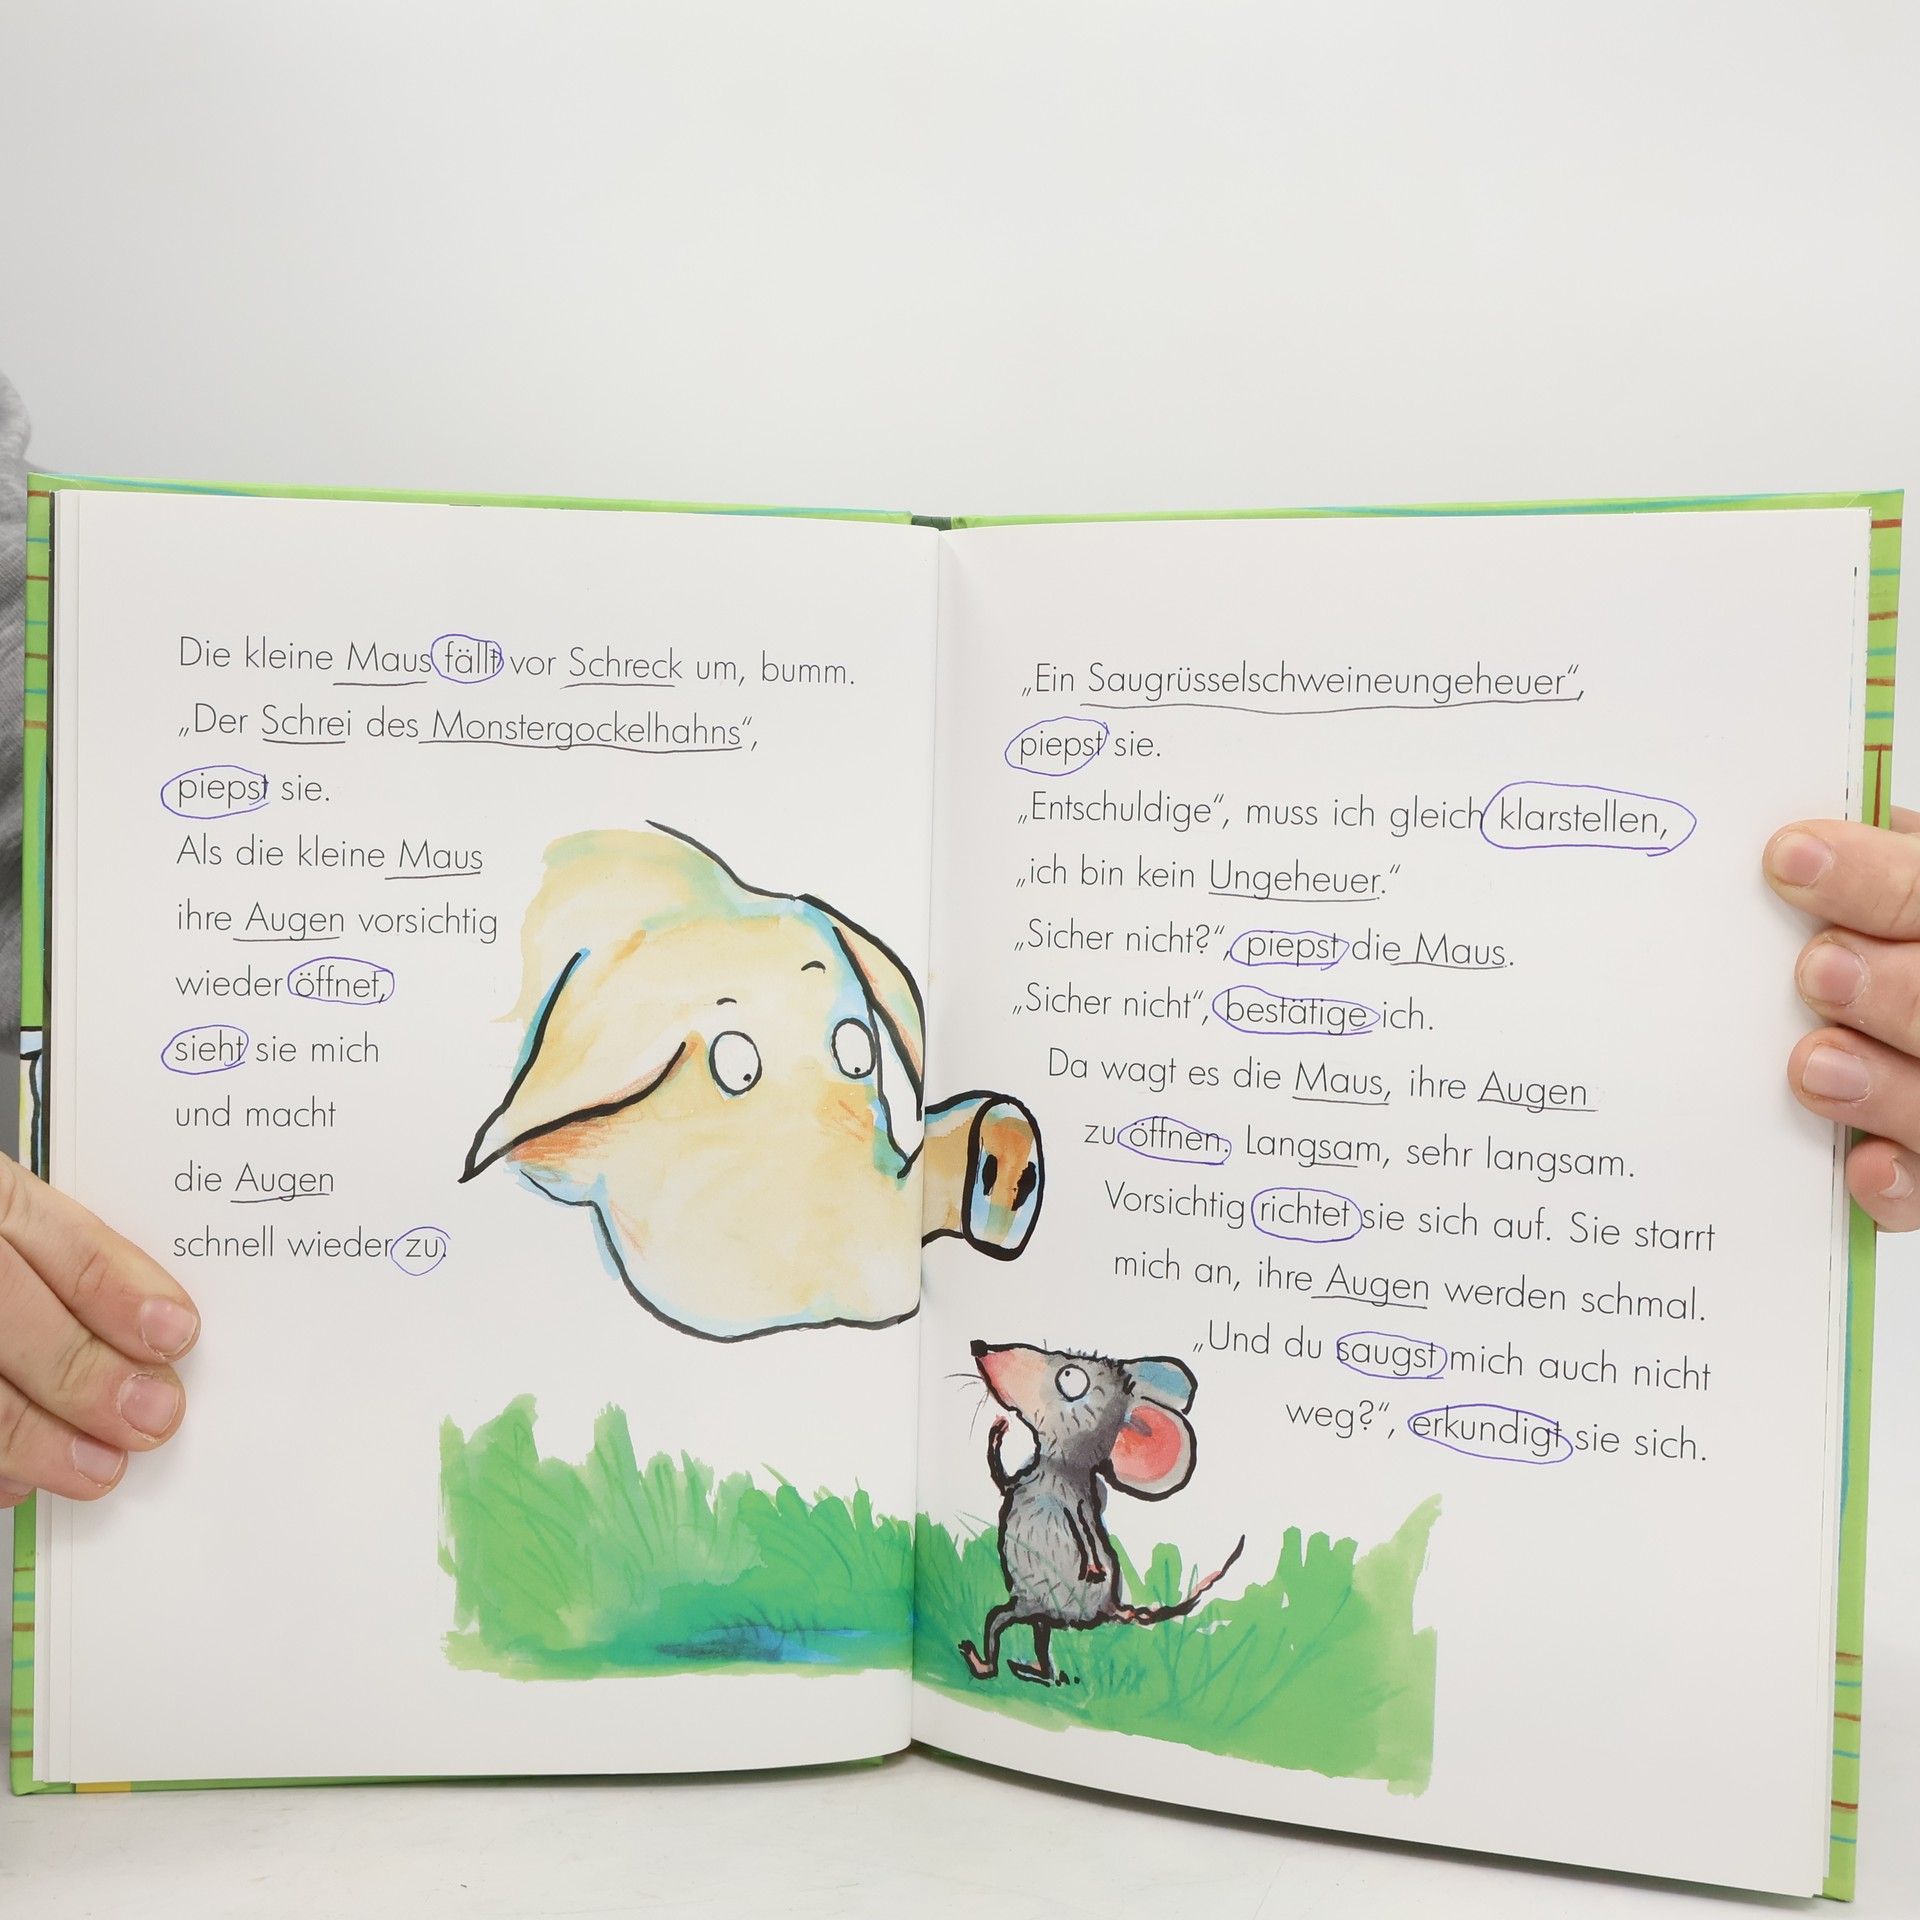 Die kleine Maus fällt vor Schreck um, bumm.
„Der Schrei des Monstergockelhahns“,
piepst sie.
Als die kleine Maus
ihre Augen vorsichtig
wieder öffnet,
sieht sie mich
und macht
die Augen
schnell wieder zu.
„Ein Saugrüsselschweineungeheuer“,
piepst sie.
„Entschuldige“, muss ich gleich klarstellen,
„ich bin kein Ungeheuer.“
„Sicher nicht?“, piepst die Maus.
„Sicher nicht“, bestätige ich.
Da wagt es die Maus, ihre Augen
zu öffnen. Langsam, sehr langsam.
Vorsichtig richtet sie sich auf. Sie starrt
mich an, ihre Augen werden schmal.
„Und du saugst mich auch nicht
weg?“, erkundigt sie sich.